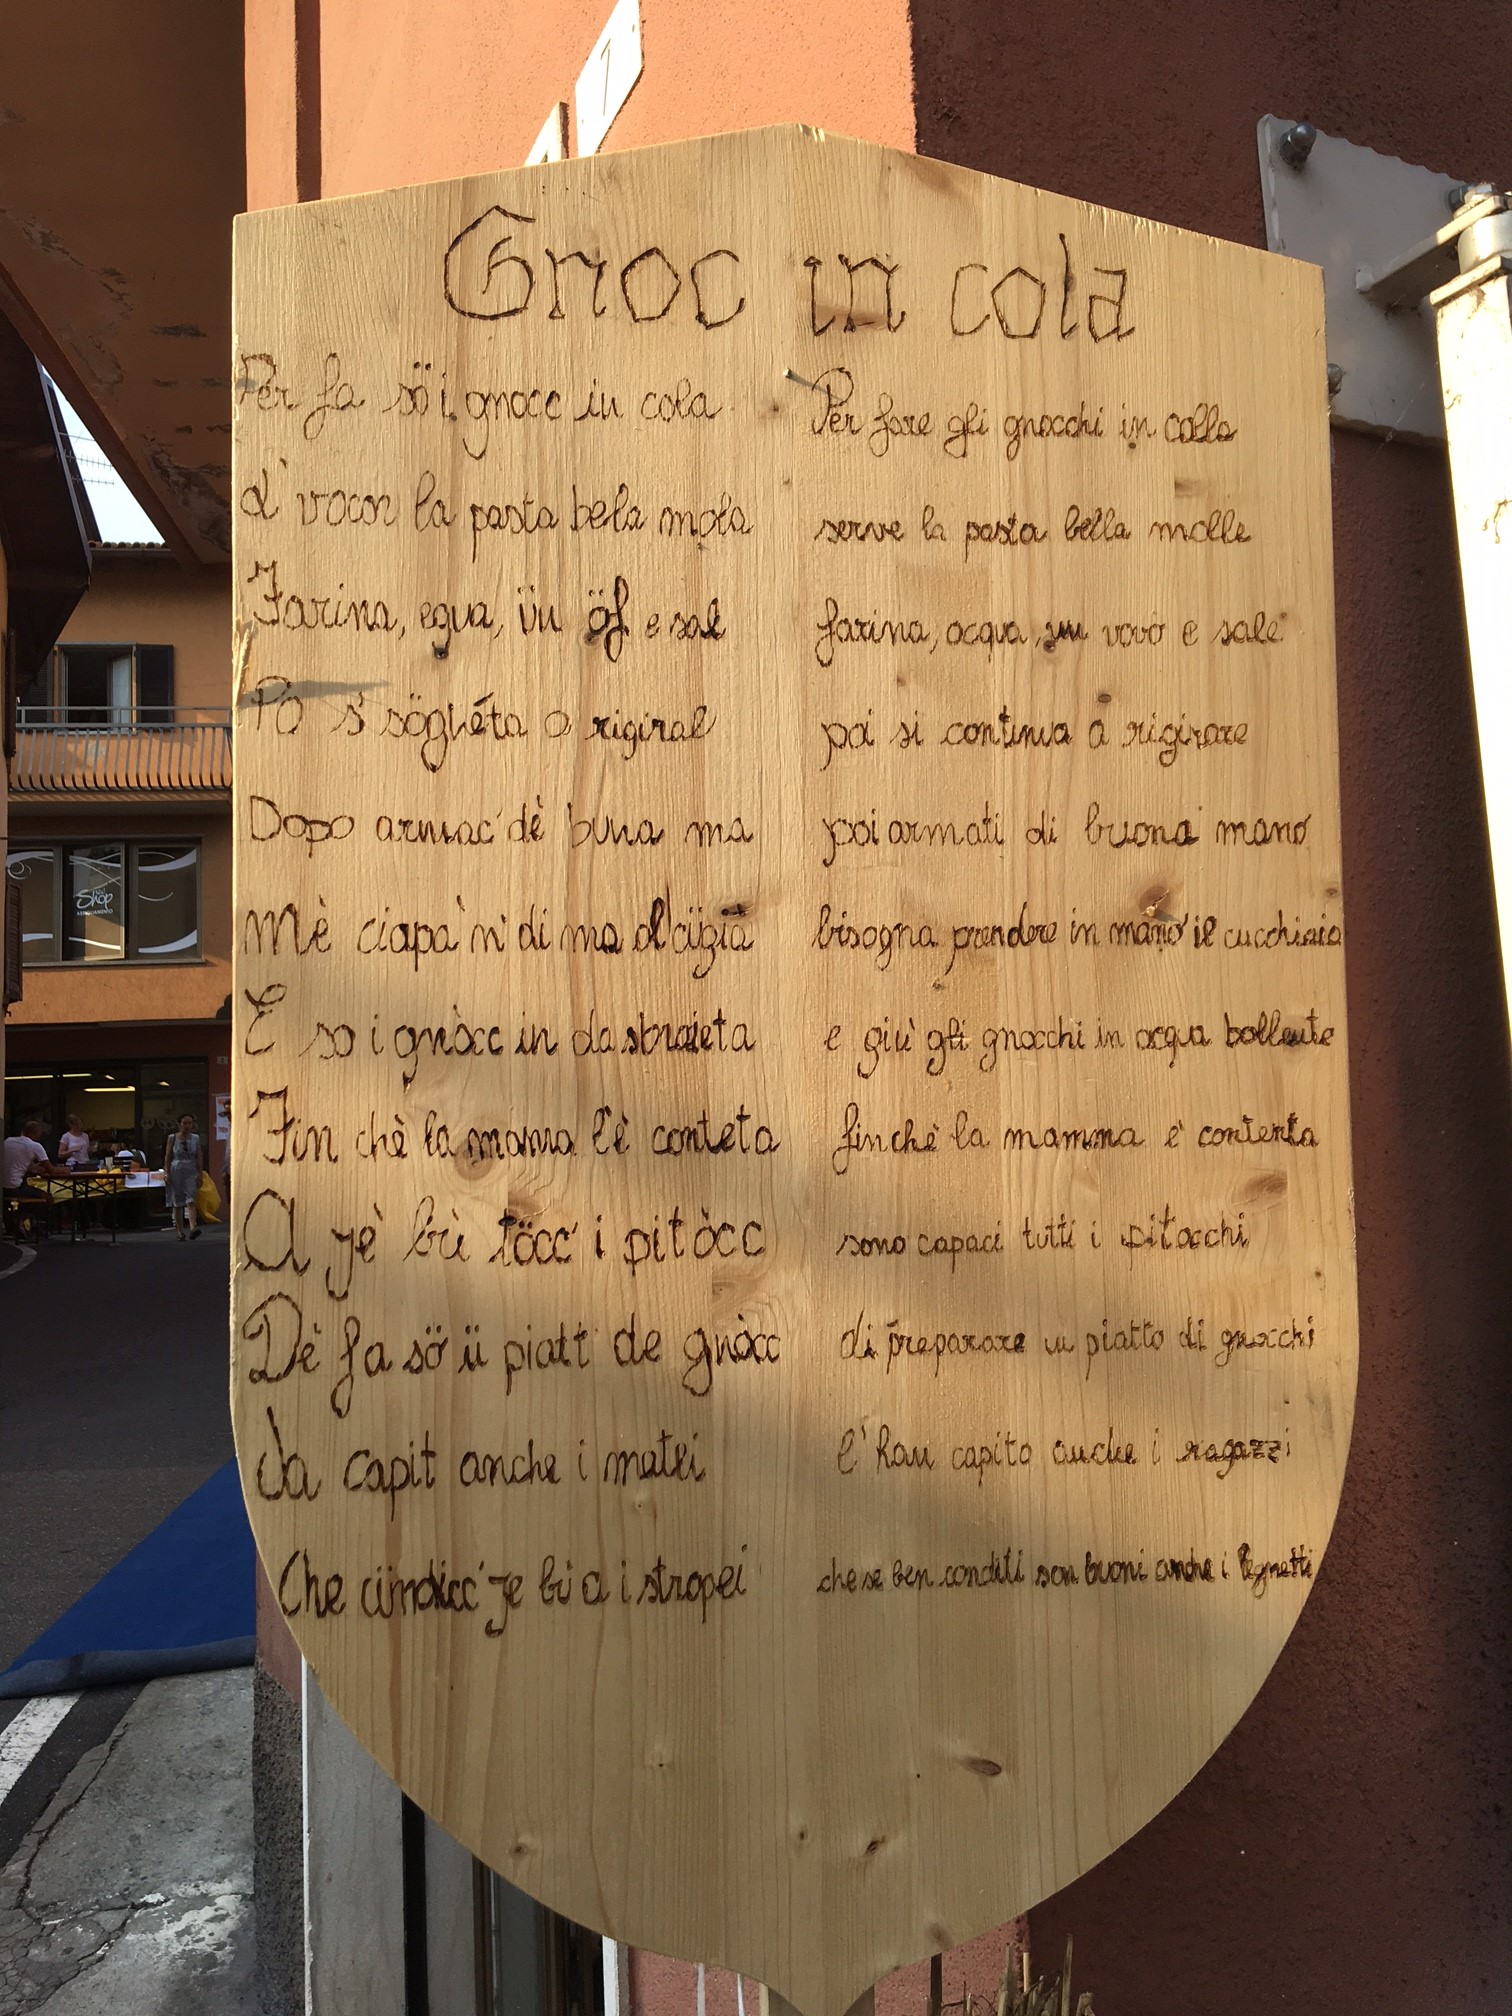 1
Gnoc in cola
Per fa sö i gnocc in cola
L' vocor la pasta bela mola
Farina, egua, ün öf e sal
Po s' söghéta a rigiral
Dopo armac' dè buna ma
Mè ciapà 'n di ma ol cügià
E so i gnòcc in da sbraieta
Fin chè la mama l'è conteta
A yè bù töcc' i pitòcc
Dè fa sö ü piatt de gnòcc
capit anche i matei
Che cündicc' ye bù a i stropei
Per fare gli gnocchi in colla
serve la pasta bella molle
farina, acqua, un vovo e sale
poi si continua a rigirare
poi armati di buona mano
bisogna prendere in mano il cucchiaio
e giù gli gnocchi in acqua bollente
finchè la mamma è contenta
sono capaci tutti i pitocchi
di preparare un piatto di gnocchi
l' han capito anche i ragazzi
che se ben conditi son buoni anche i legnetti
Shop
ABBIGLIAMENTO